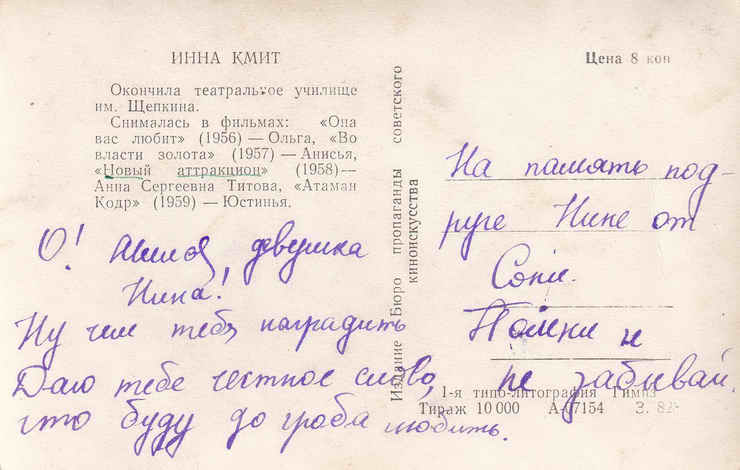 ИННА КМИТ
Окончила театральное училище
им. Щепкина.
Снималась в фильмах: «Она
вас любит» (1956) — Ольга, «Во
власти золота» (1957) — Анисья,
«Новый аттракцион» (1958) —
Анна Сергеевна Титова, «Атаман
Кодр» (1959) — Юстинья.
О! Милая девушка
Нина!
Ну чем тебя наградить
Даю тебе честное слово,
что буду до гроба любить.
Издание Бюро пропаганды советского
киноискусства
Цена 8 коп
На память под-
руге Нине от
Сони.
Помни и
не забывай.
1-я типо-литография Гимиз
Тираж 10 000 А-07154 З. 82